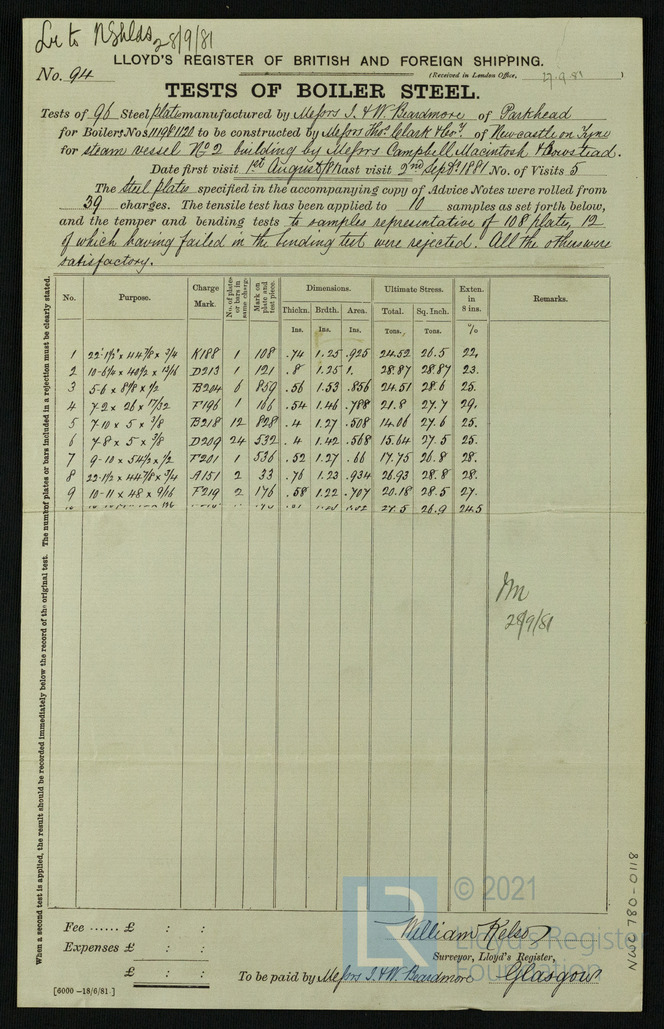 Lr to N Shlds 28/9/81
LLOYD'S REGISTER OF BRITISH AND FOREIGN SHIPPING.
No. 94 (Received in London Office, 27.9.81)
TESTS OF BOILER STEEL.
Tests of 96 Steel plates manufactured by Messrs I. & W. Beardmore of Parkhead
for Boilers Nos 1119 & 1120 to be constructed by Messrs Thos. Clark & Coy. of Newcastle on Tyne
for steam vessel No 2 building by Messrs Campbell Macintosh & Bowstead.
Date first visit 1st August/81 last visit 2nd Sepr. 1881 No. of Visits 5
The steel plates specified in the accompanying copy of Advice Notes were rolled from
39 charges. The tensile test has been applied to 10 samples as set forth below,
and the temper and bending tests to samples representative of 108 plates, 12
of which having failed in the bending test were rejected. All the others were
satisfactory.
No. Purpose. Charge Mark. No. of plates or bars in same charge Mark on plate and test piece. Dimensions. Ultimate Stress. Exten. in 8 ins. Remarks.
Thickn. Brdth. Area. Total. Sq. Inch.
Ins. Ins. Ins. Tons. Tons. %
1 22-1½ x 44⅞ x ¾ K188 1 108 .74 1.25 .925 24.52 26.5 22.
2 10-6¼ x 40½ x 13/16 D213 1 121 .8 1.25 1. 28.87 28.87 23.
3 5-6 x 8⅝ x ½ B204 6 859 .56 1.53 .856 24.51 28.6 25.
4 7-2 x 26 x 17/32 F196 1 166 .54 1.46 .788 21.8 27.7 29.
5 7-10 x 5 x ⅜ B218 12 828 .4 1.27 .508 14.06 27.6 25.
6 7-8 x 5 x ⅜ D209 24 532 .4 1.42 .568 15.64 27.5 25.
7 9-10 x 54½ x ½ F201 1 536 .52 1.27 .66 17.75 26.8 28.
8 22-1½ x 44⅞ x ¾ A151 2 33 .76 1.23 .934 26.93 28.8 28.
9 10-11 x 48 x 9/16 F219 2 176 .58 1.22 .707 20.18 28.5 27.
27.5 26.9 24.5
28/9/81
When a second test is applied, the result should be recorded immediately below the record of the original test. The number of plates or bars included in a rejection must be clearly stated.
Fee ...... £ : :
Expenses £ : :
£ : :
William Kelso
Surveyor, Lloyd's Register,
To be paid by Messrs I. & W. Beardmore Glasgow
[6000 –18/6/81.]
NWC 780 - 0118
LR © 2021
Lloyd's Register
Foundation